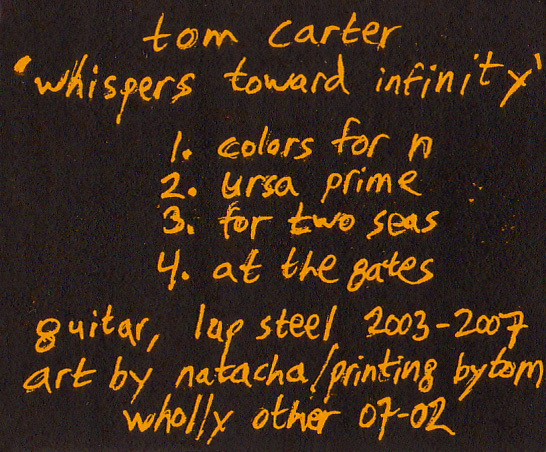 tom carter
'whispers toward infinity'
1. colors for n
2. ursa prime
3. for two seas
4. at the gates
guitar, lap steel 2003-2007
art by natacha/printing by tom
wholly other 07-02